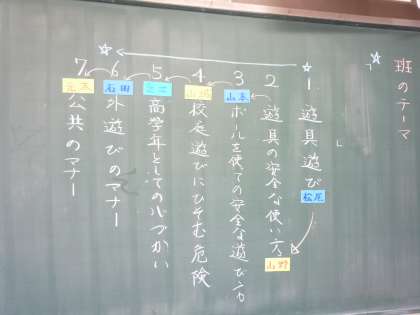 班のテーマ
1 遊具遊び
松尾
2 遊具の安全な使い方
山野
3 ボールを使っての安全な遊び方
山本
4 校庭遊びにひそむ危険
5 高学年としての心づかい
6 外遊びのマナー
石田
7 公共のマナー